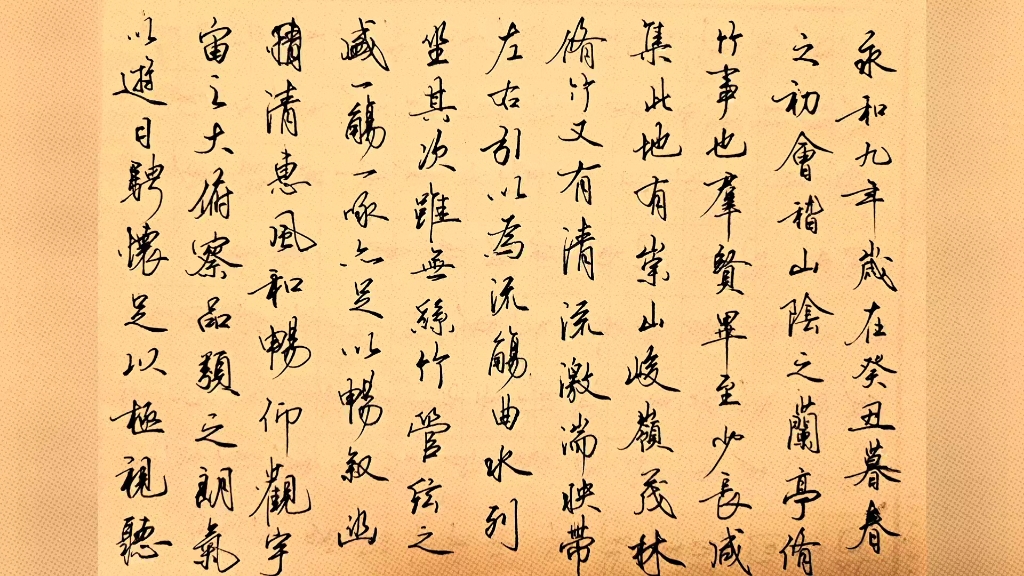 永和九年歲在癸丑暮春
之初會稽山陰之蘭亭脩
竹事也羣賢畢至少長咸
集此地有崇山峻嶺茂林
脩竹又有清流激湍映帶
左右引以為流觴曲水列
坐其次雖無絲竹管絃之
盛一觴一咏亦足以暢叙幽
情清惠風和暢仰觀宇
宙之大俯察品類之朗氣
以遊目騁懷足以極視聽